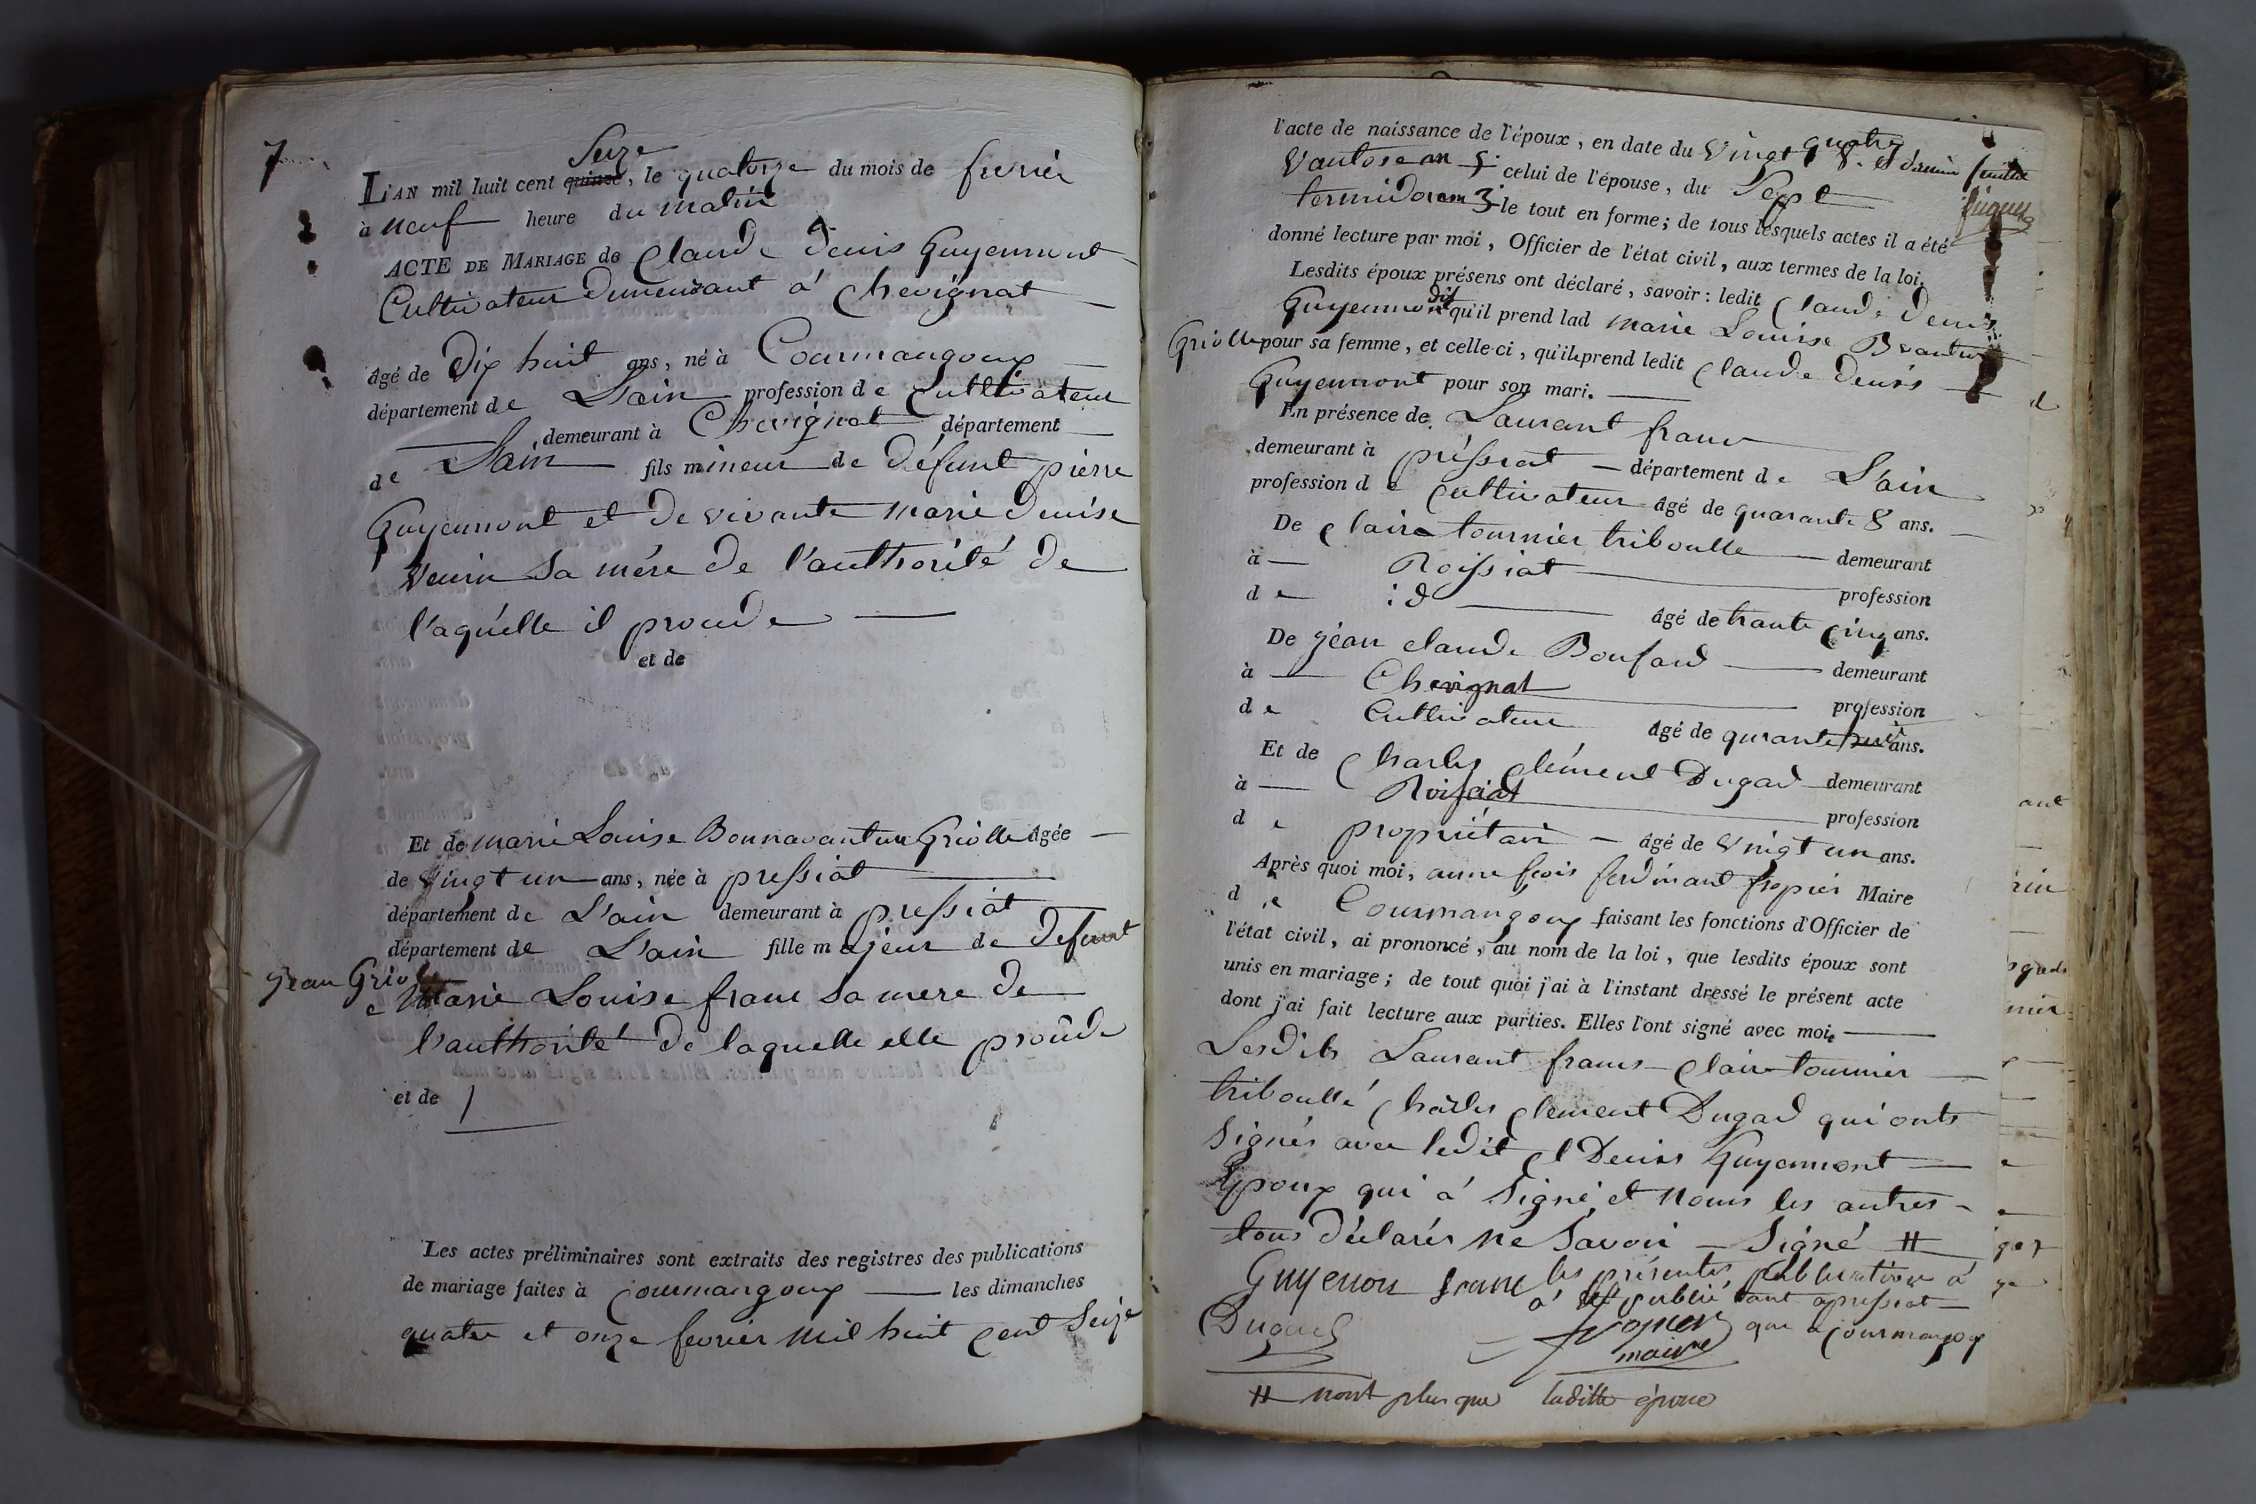 7
Seize
L'AN mil huit cent quinze, le quatorze du mois de fevrier
à neuf heure du matin
ACTE DE MARIAGE de Claude denis Guyennont
Cultivateur demeurant á Chevignat
âgé de dix huit ans, né à Courmangoux
département de L'ain profession de Cultivateur
demeurant à Chevignat département
de L'ain fils mineur de défunt pierre
Guyennont et de vivante marie denise
veuin sa mére de l'authorité de
l'aquélle il proude
et de
Et de marie Louise Bonnavanture Griolle âgée
de vingt un ans, née à pressiat
département de L'ain demeurant à pressiat
département de L'ain fille majeur de defunt
jean Griolle
e marie Louise franc sa mere de
l'authorité de laquelle elle proude
et de /
Les actes préliminaires sont extraits des registres des publications
de mariage faites à Courmangoux les dimanches
quatre et onze fevrier mil huit cent Seize
l'acte de naissance de l'époux, en date du vingt quatre
vantose an 5. celui de l'épouse, du Sept
termidor an 3 le tout en forme; de tous lesquels actes il a été
donné lecture par moi, Officier de l'état civil, aux termes de la loi.
Lesdits époux présens ont déclaré, savoir: ledit Claude denis
Guyennont dit qu'il prend lad marie Louise Bvantur
Griolle pour sa femme, et celle-ci, qu'il prend ledit Claude denis
Guyennont pour son mari.
En présence de Laurant franc
demeurant à préssiat département de L'ain
profession de cultivateur âgé de quarante 8 ans.
De Claire tournier triboulle demeurant
à Roissiat profession
de id âgé de trante cinq ans.
De jéan claude Boufard demeurant
à Chevignat profession
de Cultivateur âgé de quarante ans.
Et de Charles clément Dugad demeurant
à Roissiat profession
de propriétaire âgé de vingt un ans.
Après quoi moi, anne fcois ferdinant fropier Maire
de Courmangoux faisant les fonctions d'Officier de
l'état civil, ai prononcé, au nom de la loi, que lesdits époux sont
unis en mariage; de tout quoi j'ai à l'instant dressé le présent acte
dont j'ai fait lecture aux parties. Elles l'ont signé avec moi.
Lesdits Laurant franc clair tournier
triboullé Charles clement Dugad qui onts
Signés avec ledit Cl Denis Guyennont
Epoux qui á Signé et Nous les autres
tous déclarés ne Savoir Signé #
Guyenon franc les présentes publication á
á été publié tant a pressiat
Dugad que a Courmangoux
maire
# nont plus que laditte épouse